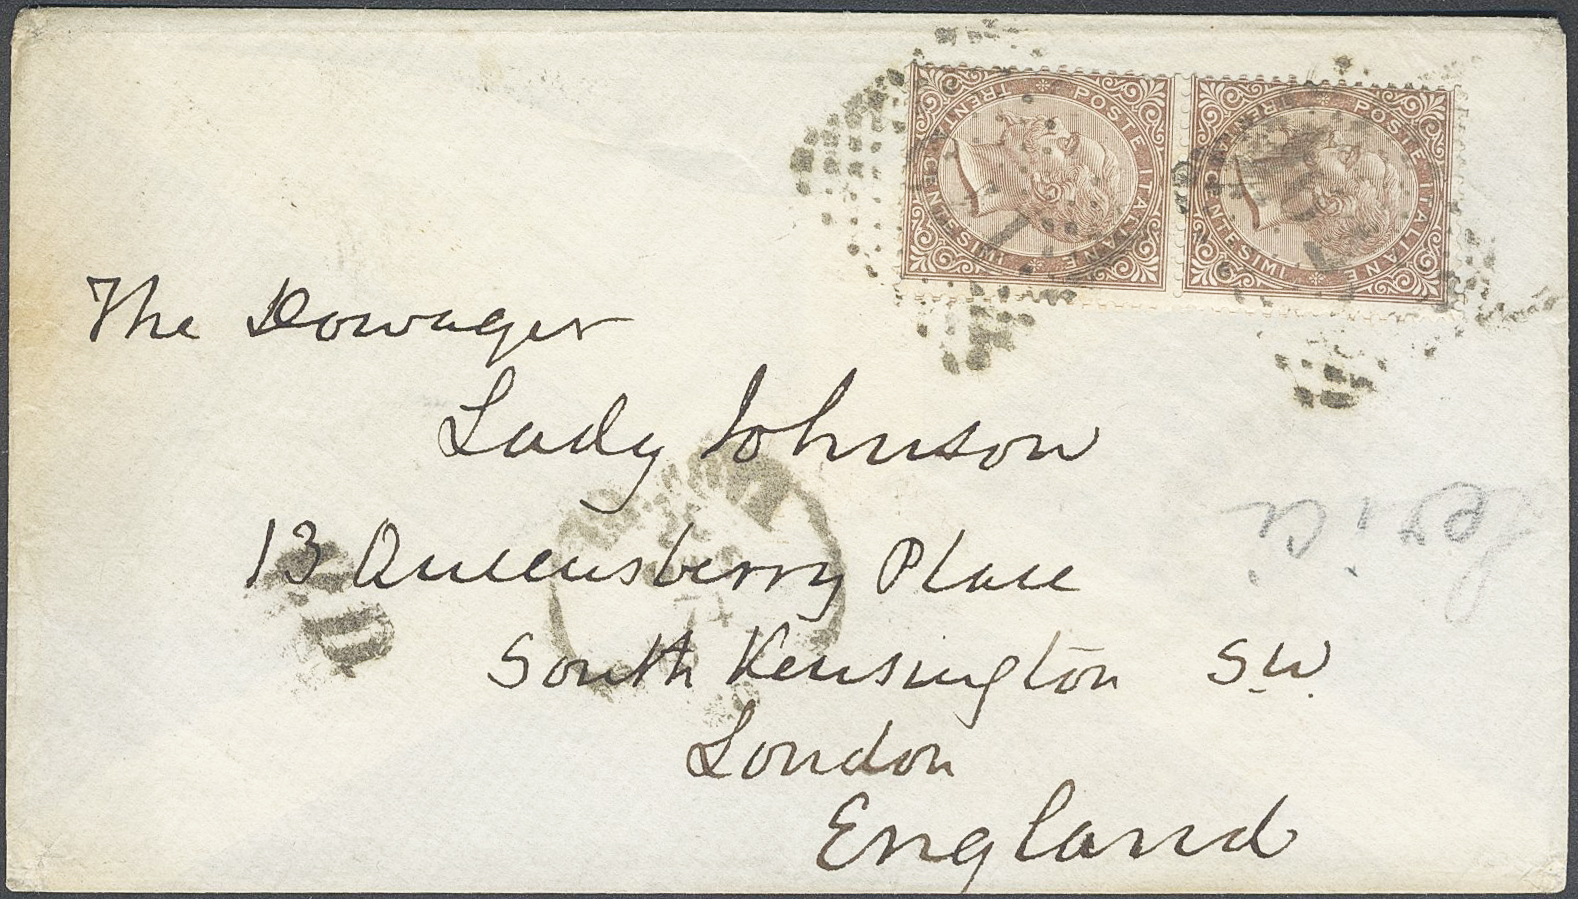 POSTE ITALIANE
TRENTA CENTESIMI
POSTE ITALIANE
TRENTA CENTESIMI
The Dowager
Lady Johnson
13 Queensberry Place
South Kensington S.W.
London
England
PD